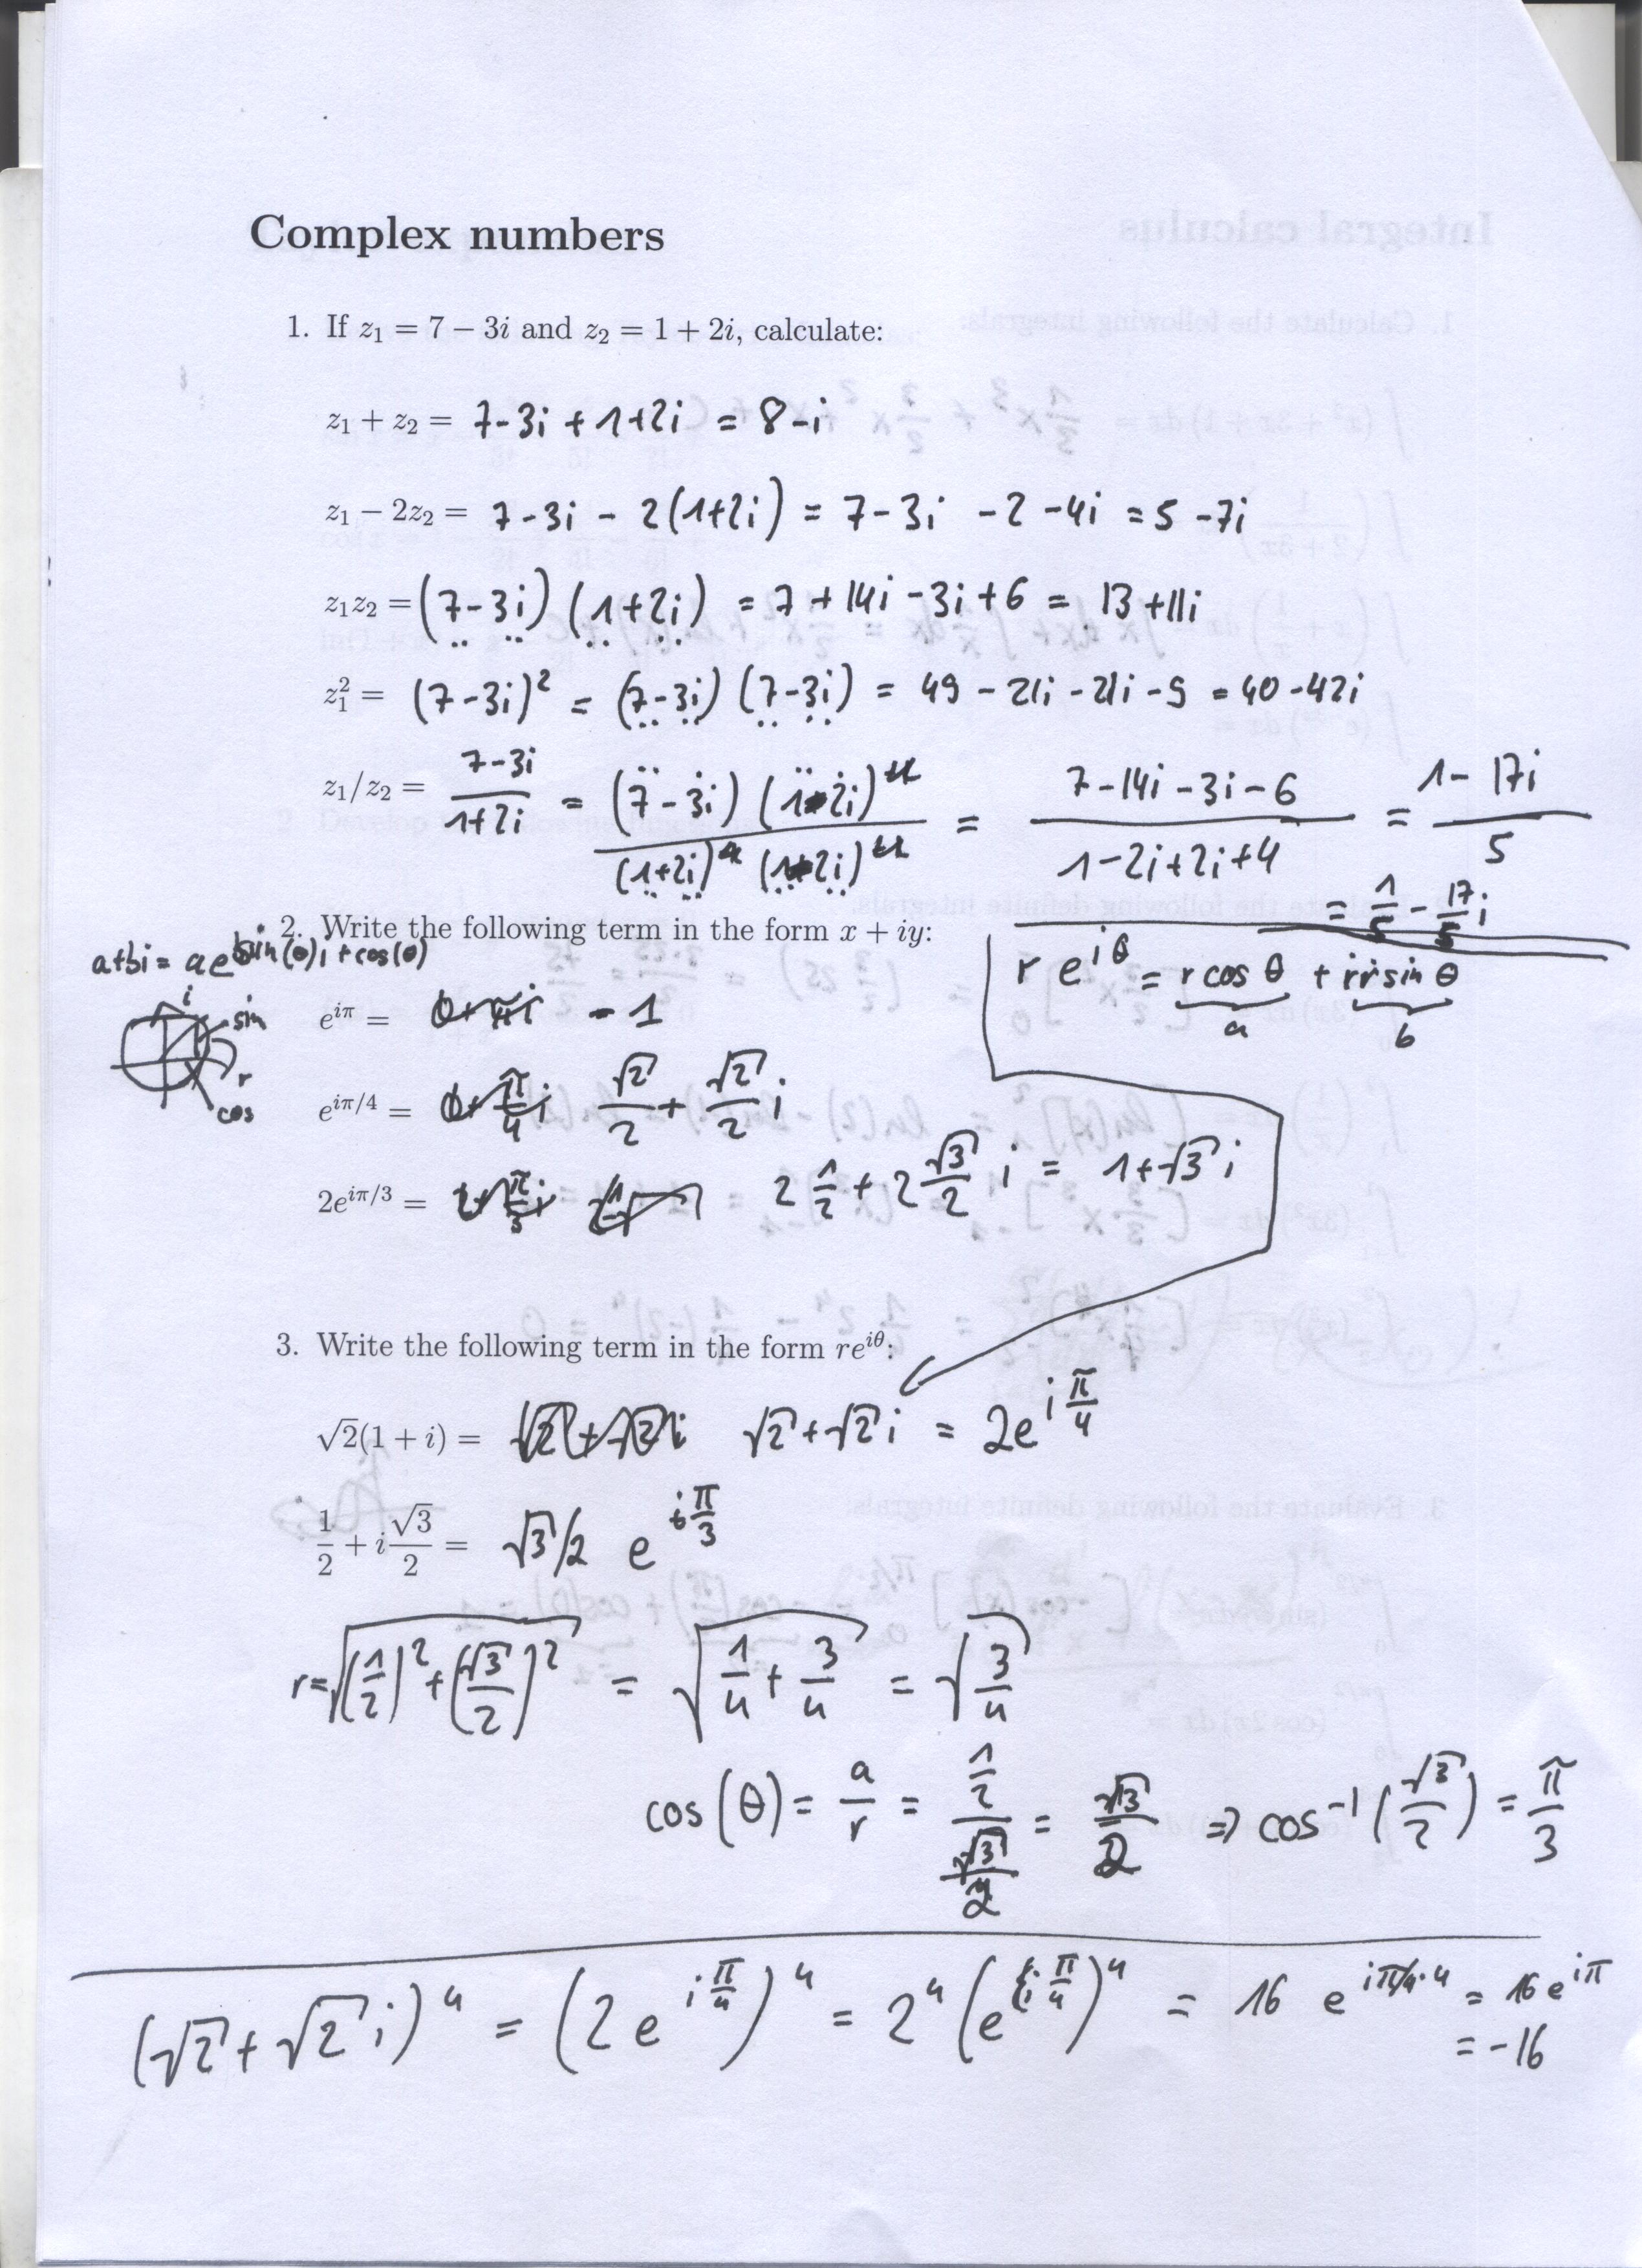 Complex numbers
1. If z₁ = 7 − 3i and z₂ = 1 + 2i, calculate:
z₁ + z₂ = 7-3i + 1+2i = 8-i
z₁ − 2z₂ = 7-3i - 2(1+2i) = 7-3i -2 -4i = 5 -7i
z₁z₂ = (7-3i) (1+2i) = 7 + 14i -3i +6 = 13 +11i
z₁² = (7-3i)² = (7-3i) (7-3i) = 49 - 21i - 21i - 9 = 40 -42i
z₁/z₂ = (7-3i)/(1+2i) = (7-3i) (1-2i) / (1+2i) (1-2i) = (7-14i -3i -6)/(1-2i+2i+4) = (1-17i)/5
= 1/5 - 17/5 i
2. Write the following term in the form x + iy:
a+bi = ae sin(θ)i + cos(θ)
r e^{iθ} = r cos θ + i r sin θ
a b
i
sin
r
cos
e^{iπ} = -1
e^{iπ/4} = √2/2 + √2/2 i
2e^{iπ/3} = 2 1/2 + 2 √3/2 i = 1+√3 i
3. Write the following term in the form re^{iθ}:
√2(1 + i) = √2 + √2 i = 2e^{i π/4}
1/2 + i √3/2 = √3/2 e^{i π/3}
r = √((1/2)² + (√3/2)²) = √(1/4 + 3/4) = √(3/4)
cos(θ) = a/r = (1/2)/(√3/2) = √3/2 ⇒ cos⁻¹(√3/2) = π/3
(√2 + √2 i)⁴ = (2 e^{i π/4})⁴ = 2⁴ (e^{i π/4})⁴ = 16 e^{iπ/4·4} = 16 e^{iπ}
= -16